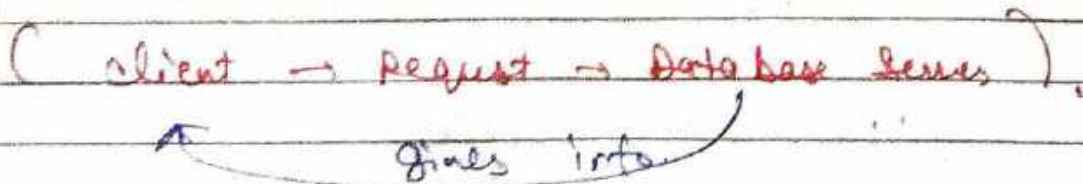 ( client → Request → Database Server ).
gives info